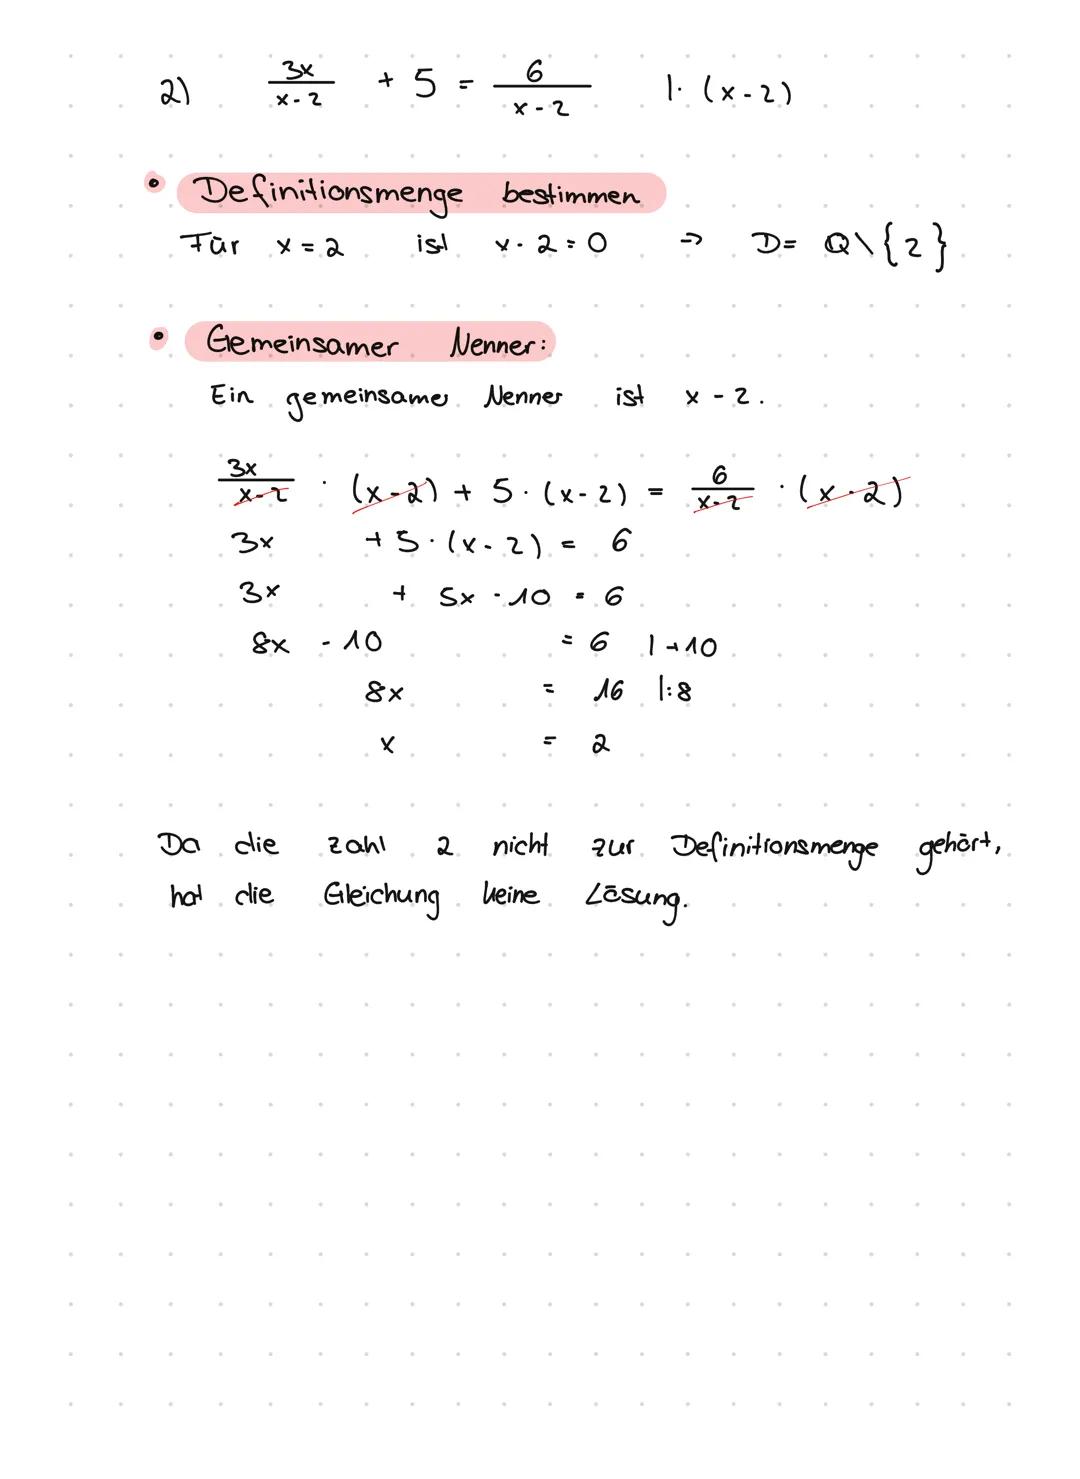 2) 3x/x-2 + 5 = 6/x-2 |· (x-2)
• Definitionsmenge bestimmen
Für x = 2 ist x-2=0 => D= Q\{2}
• Gemeinsamer Nenner:
Ein gemeinsamer Nenner ist x - 2.
3x/x-2 · (x-2) + 5·(x-2) = 6/x-2 · (x-2)
3x + 5·(x-2) = 6
3x + 5x - 10 = 6
8x - 10 = 6 |+10
8x = 16 |:8
x = 2
Da die zahl 2 nicht zur Definitionsmenge gehört,
hat die Gleichung keine Lösung.